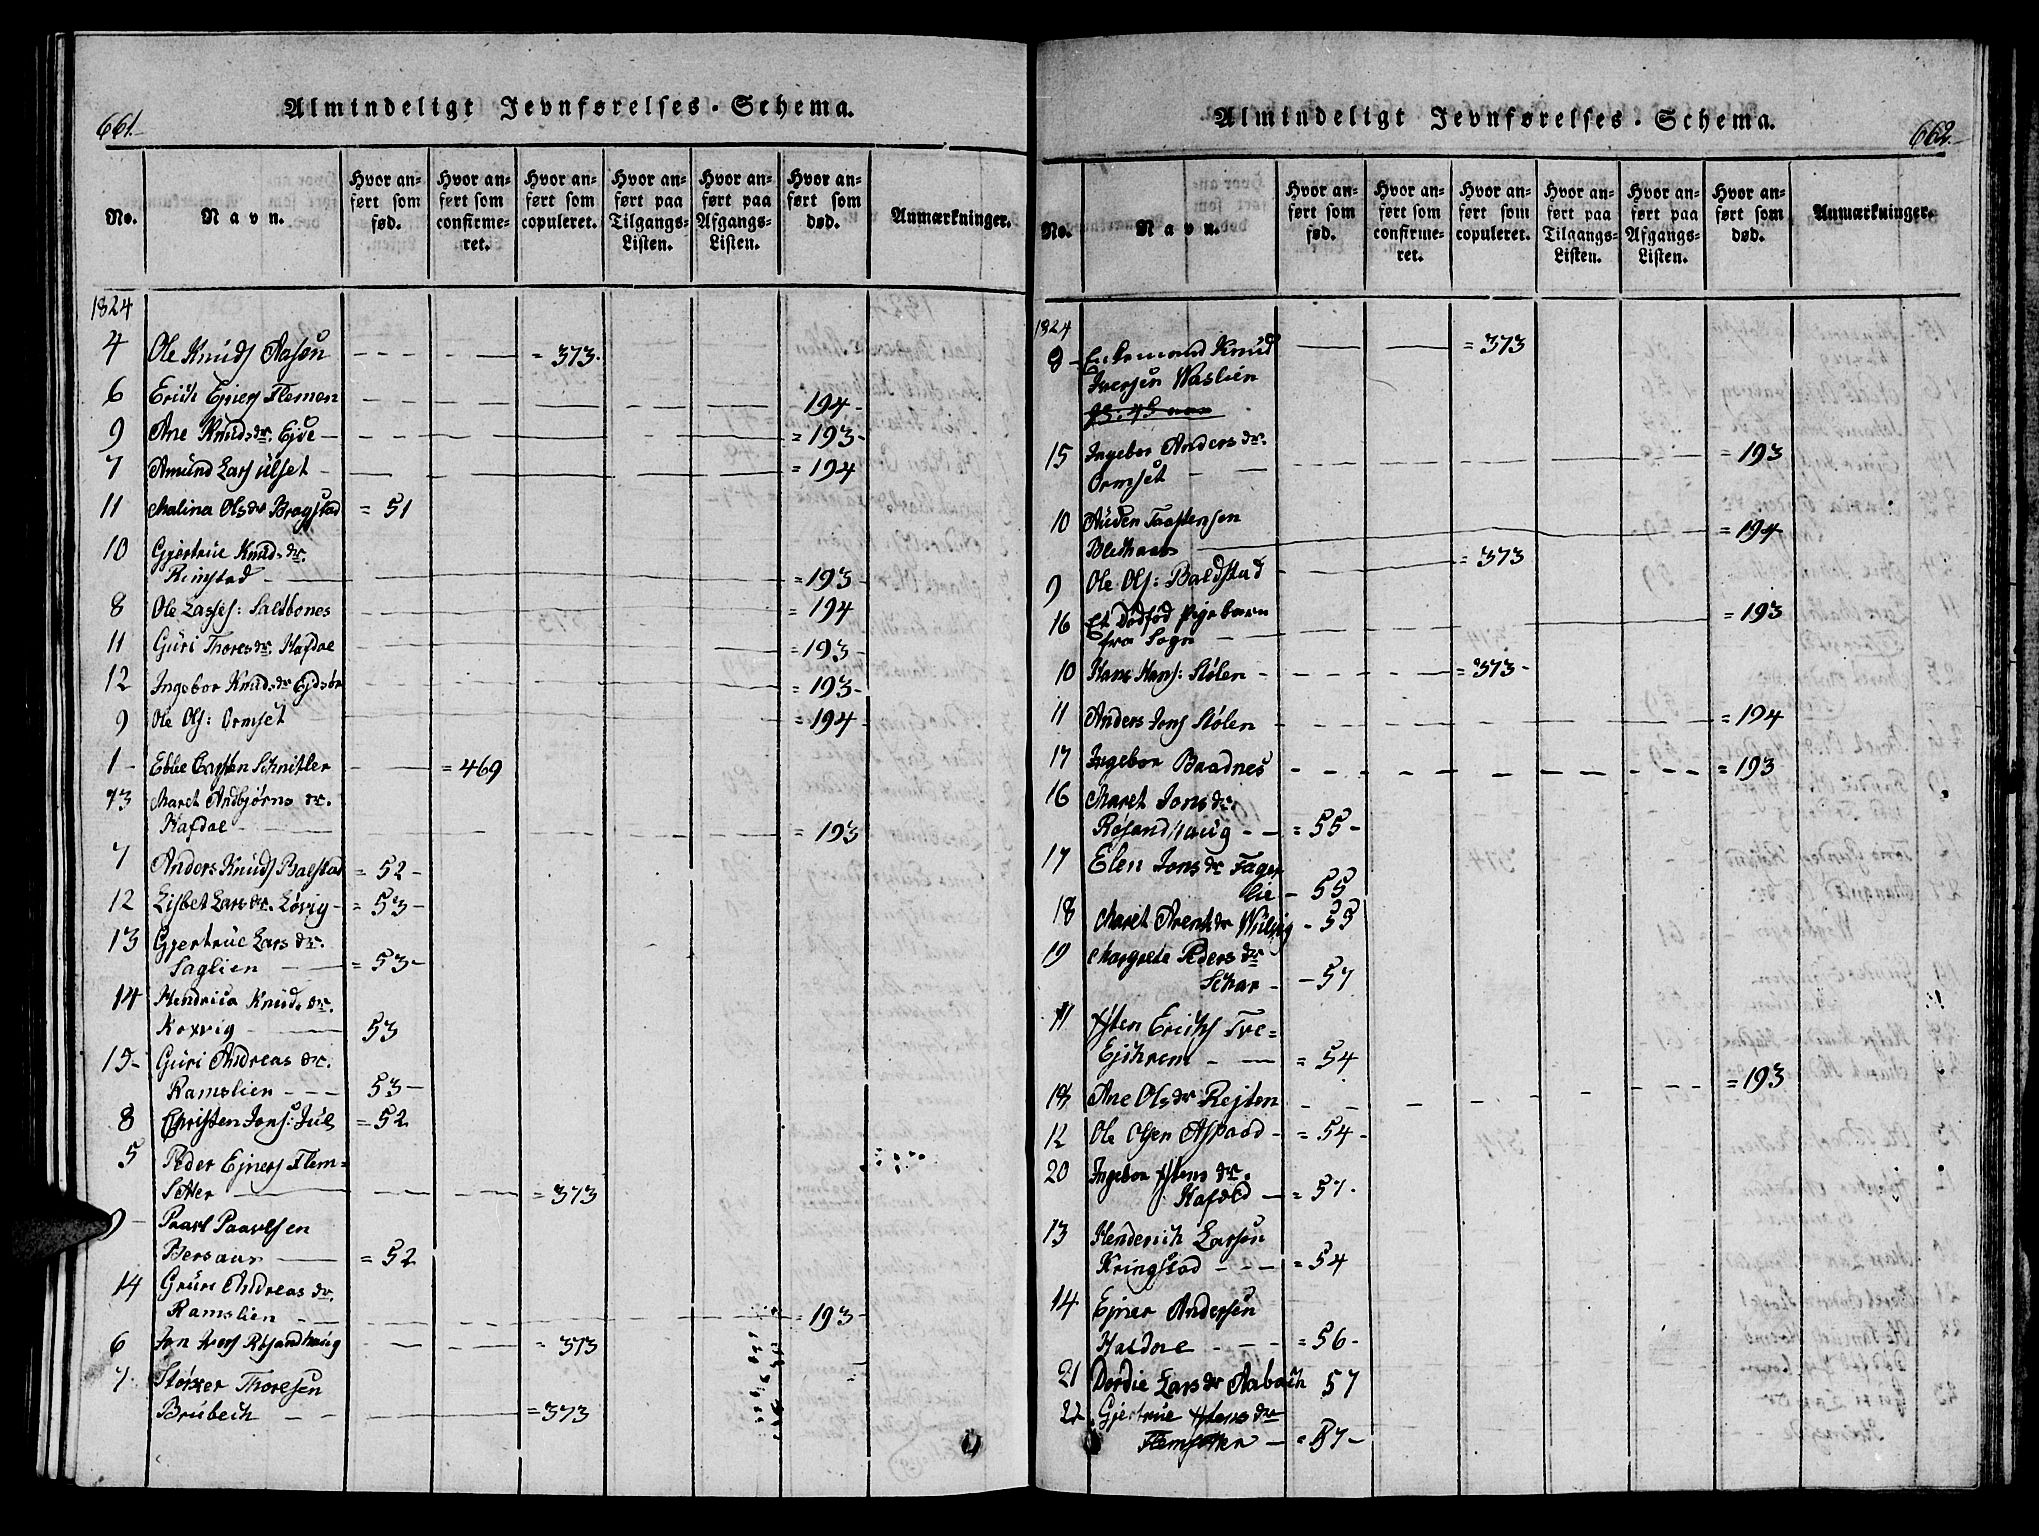 661.
Almindeligt Jevnførelses-Schema.
No.
Navn.
Hvor anført som fød.
Hvor anført som confirmeret.
Hvor anført som copuleret.
Hvor anført paa Tilgangs-Listen.
Hvor anført paa Afgangs-Listen.
Hvor anført som død.
Anmærkninger.
1824
4 Ole Knuds Aasen = 373.
6 Erich Ejners Flemen 194-
9 Ane Knudsdr. Ejde = 193-
7 Amund Lars Ulset = 194
11 Malina Olsdr Bragstad = 51
10 Gjertrue Knudsdr.
Rimstad = 193-
8 Ole Lasses: Saltbones = 194
11 Guri Thoresdr. Hafdal = 193-
12 Ingebor Knudsdr Ejdsør = 193-
9 Ole Ols: Ormset = 194-
1 Ebbe Carsten Schnitler = 469
13 Maret Andbjørns dr.
Hafdal = 193
7 Anders Knuds Balstad = 52-
12 Lisbet Larsdr. Løvig = 53-
13 Gjertrue Lars dr.
Saglien = 53-
14 Hendrica Knuds dr.
Koxvig 53
15- Guri Andreas dr.
Ramslien 53-
8 Christen Jons: Juul = 52
5 Peder Ejners Flem=
Setter = 373
9 Paavl Paavlsen
Bersaas = 52
14 Guri Andreas dr.
Ramslien = 193-
6 Jon Ivers Røsandhaug = 373
7 Størker Thoresen
Brubech = 373
Almindeligt Jevnførelses-Schema.
662.
No.
Navn.
Hvor anført som fød.
Hvor anført som confirmeret.
Hvor anført som copuleret.
Hvor anført paa Tilgangs-Listen.
Hvor anført paa Afgangs-Listen.
Hvor anført som død.
Anmærkninger.
1824
8 Enkemand Knud = 373
Iversen Waslien
15 Ingebor Anders dr.
Ormset = 193
10 Auden Taastensen
= 194
9 Ole Ols: Baldstad = 373
16 Et Dødfød Pigebarn
fra Sogn = 193
10 Hans Hans: Stølen = 373-
11 Anders Jons Stølen = 194
17 Ingebor Baadnes = 193
16 Maret Jons dr.
Røsandhaug = 55-
17 Elen Jons dr Fager
lie - 55
18 Maret Arentdr Wulvig - 55
19 Margrete Peders dr
Schar - 57
11 Østen Erichs Tre=
Ejchrem = 54
18 Ane Olsdr Rejten = 193
12 Ole Olsen Aspaas = 54-
20 Ingebor Østens dr.
Hafdl = 57.
13 Henderich Larsen
Kringstad = 54
14 Ejner Andersen
Haldoe = 56-
21 Dordie Larsdr Aabach 57
22 Gjertrue Østens dr
Flemsetter = 57-